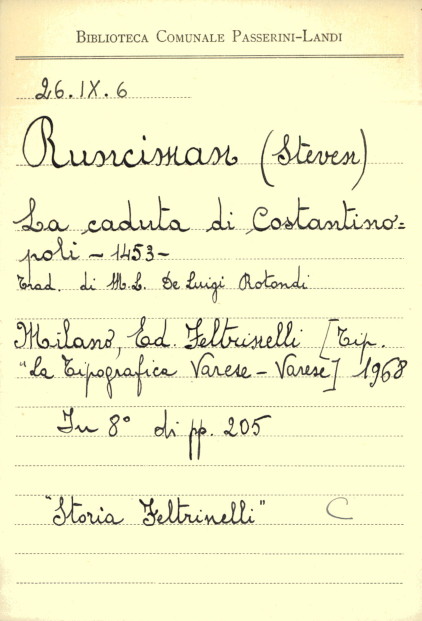 BIBLIOTECA COMUNALE PASSERINI-LANDI
26.IX.6
Runciman (Steven)
La caduta di Costantino=
poli - 1453 -
Trad. di M.L. De Luigi Rotondi
Milano, Ed. Feltrinelli [Tip.
"La Tipografica Varese - Varese] 1968
In 8° di pp. 205
"Storia Feltrinelli" C